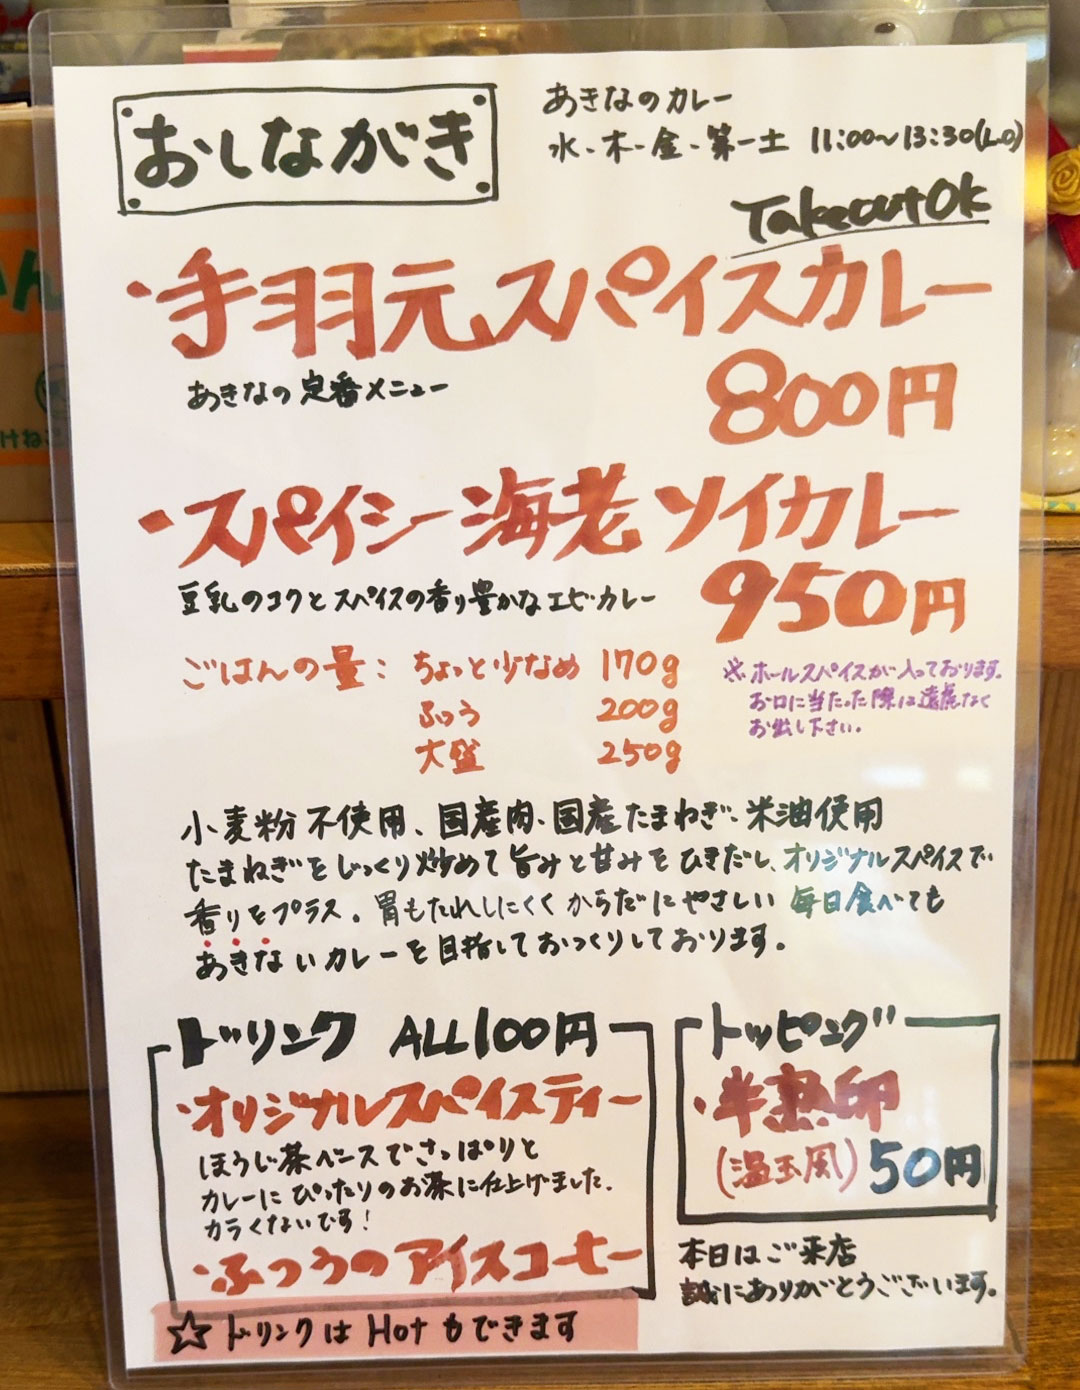 おしながき
あきなのカレー
水・木・金・第一土 11:00～13:30(L.O)
Takeout OK
・手羽元スパイスカレー
800円
あきなの定番メニュー
・スパイシー海老ソイカレー
950円
豆乳のコクとスパイスの香り豊かなエビカレー
ごはんの量: ちょっと少なめ 170g
ふつう 200g
大盛 250g
※ホールスパイスが入っております。
お口に当たった際は遠慮なく
お出し下さい。
小麦粉不使用、国産肉、国産たまねぎ、米油使用
たまねぎをじっくり炒めて旨みと甘みをひきだし、オリジナルスパイスで
香りをプラス。胃もたれしにくくからだにやさしい毎日食べても
あきないカレーを目指しておつくりしております。
ドリンク ALL100円
・オリジナルスパイスティー
ほうじ茶ベースでさっぱりと
カレーにぴったりのお茶に仕上げました。
カラくないです!
・ふつうのアイスコーヒー
☆ドリンクはHotもできます
トッピング
・半熟卵
(温玉風) 50円
本日はご来店
誠にありがとうございます。